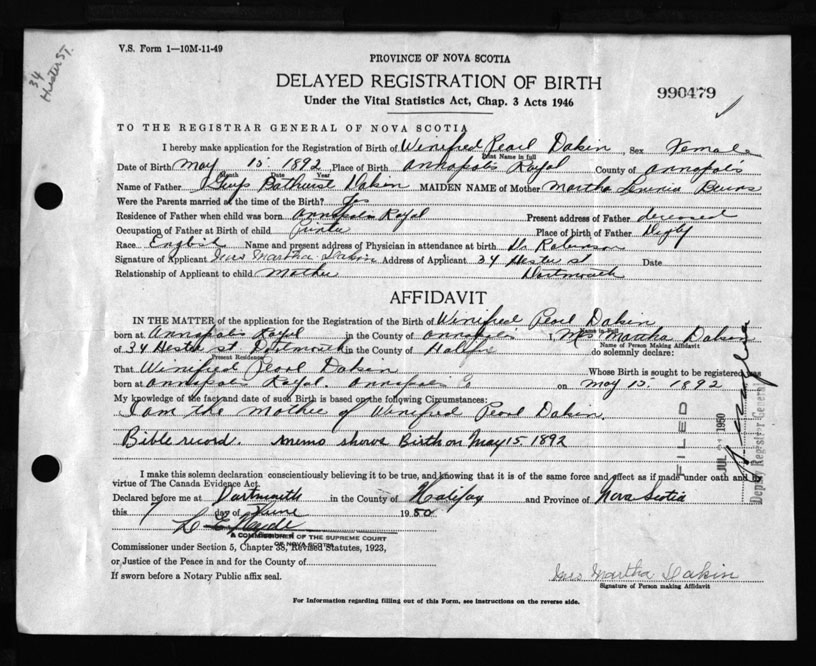 V.S. Form 1—10M-11-49
34
Hester St.
PROVINCE OF NOVA SCOTIA
DELAYED REGISTRATION OF BIRTH
990479
Under the Vital Statistics Act, Chap. 3 Acts 1946
TO THE REGISTRAR GENERAL OF NOVA SCOTIA
I hereby make application for the Registration of Birth of Winifred Pearl Dakin, Sex Female
Print Name in full
Date of Birth May 15. 1892 Place of Birth Annapolis Royal County of Annapolis
Month Date Year
Name of Father Bathurst Dakin MAIDEN NAME of Mother Martha Burns
Were the Parents married at the time of the Birth? Yes
Residence of Father when child was born Annapolis Royal Present address of Father deceased
Occupation of Father at Birth of child Printer Place of birth of Father Digby
Race English Name and present address of Physician in attendance at birth Dr. Robinson
Signature of Applicant Mrs Martha Dakin Address of Applicant 34 Hester St Date
Relationship of Applicant to child Mother Dartmouth
AFFIDAVIT
IN THE MATTER of the application for the Registration of the Birth of Winifred Pearl Dakin
Name in Full
born at Annapolis Royal in the County of Annapolis, Mrs Martha Dakin
Name of Person Making Affidavit
of 34 Hester St. Dartmouth in the County of Halifax do solemnly declare:
Present Residence
That Winifred Pearl Dakin Whose Birth is sought to be registered was
born at Annapolis Royal. Annapolis Co on May 15. 1892
My knowledge of the fact and date of such Birth is based on the following Circumstances:
I am the Mother of Winifred Pearl Dakin.
Bible record. memo shows Birth on May 15. 1892
I make this solemn declaration conscientiously believing it to be true, and knowing that it is of the same force and effect as if made under oath and by
virtue of The Canada Evidence Act.
Declared before me at Dartmouth in the County of Halifax and Province of Nova Scotia
this 7 day of June 1950
A COMMISSIONER OF THE SUPREME COURT
OF NOVA SCOTIA
Commissioner under Section 5, Chapter 38, Revised Statutes, 1923,
or Justice of the Peace in and for the County of
If sworn before a Notary Public affix seal.
Mrs Martha Dakin
Signature of Person making Affidavit
For Information regarding filling out of this Form, see instructions on the reverse side.
FILED
JUL 1950
Deputy Registrar General